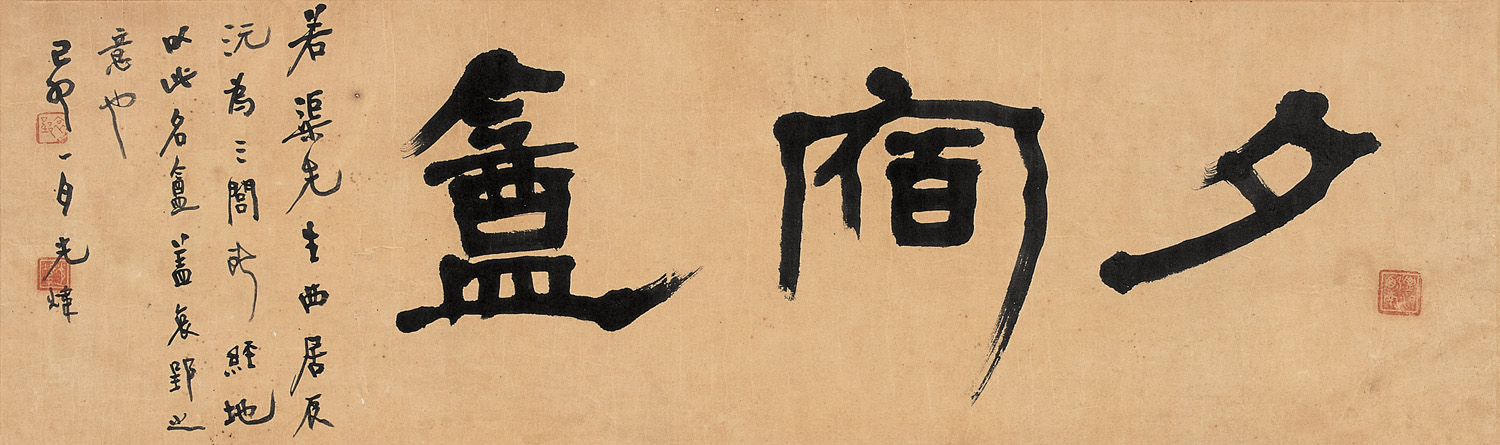 夕宿盦
若渠先生西居辰
沅為三閭所經地
以此名盦蓋哀郢之
意也
己卯一月光煒